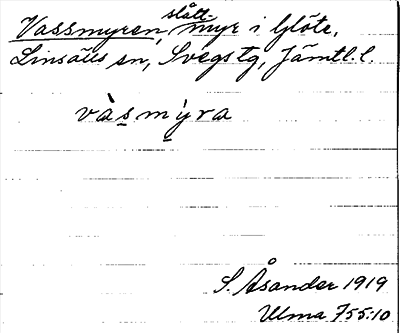 Vassmyren, slåttmyr i Glöte,
Linsälls sn, Svegs tg, Jämtl. l.
vàsmýra
S. Åsander 1919
Ulma 755:10